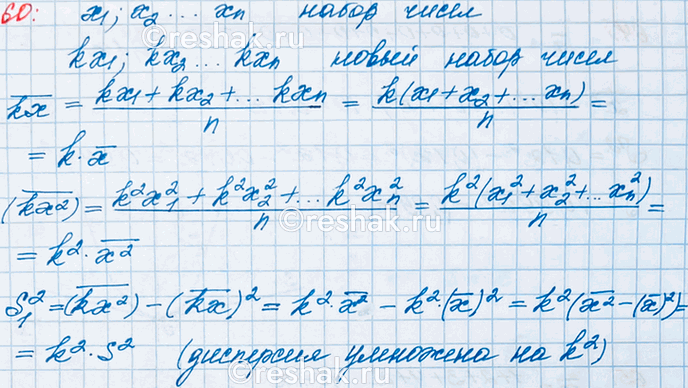 60: x₁; x₂ ... xₙ набор чисел
kx₁; kx₂ ... kxₙ новый набор чисел
\overline{kx} = \frac{kx₁ + kx₂ + ... kxₙ}{n} = \frac{k(x₁ + x₂ + ... xₙ)}{n} =
= k · \overline{x}
(\overline{kx²}) = \frac{k²x₁² + k²x₂² + ... k²xₙ²}{n} = \frac{k²(x₁² + x₂² + ... xₙ²)}{n} =
= k² · \overline{x²}
S₁² = (\overline{kx²}) - (\overline{kx})² = k² · \overline{x²} - k² · (\overline{x})² = k²(\overline{x²} - (\overline{x})²) =
= k² · S² (дисперсия умножена на k²)
©reshak.ru
©reshak.ru
©reshak.ru